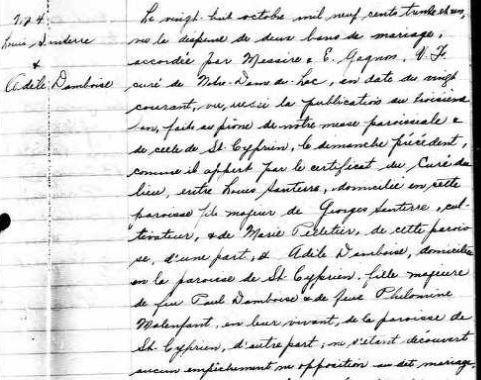 Louis Santerre
&
Adèle Damboise
Le vingt-huit octobre mil neuf cent trente et un,
vu la dispense de deux bans de mariage,
accordée par Messire E. Gagnon, V. F.
curé de Notre-Dame du Lac, en date du vingt
courant, vu aussi la publication du troisième
ban, faite au prône de notre messe paroissiale &
de celle de St. Cyprien, le dimanche précédent,
comme il appert par le certificat du Curé du
lieu, entre Louis Santerre, domicilié en cette
paroisse fils majeur de Georges Santerre, cul-
tivateur, & de Marie Pelletier, de cette parois-
se, d'une part, & Adèle Damboise, domiciliée
en la paroisse de St. Cyprien, fille majeure
de feu Paul Damboise & de feue Philomine
Malenfant, en leur vivant, de la paroisse de
St. Cyprien, d'autre part; ne s'étant découvert
aucun empêchement ni opposition au dit mariage,